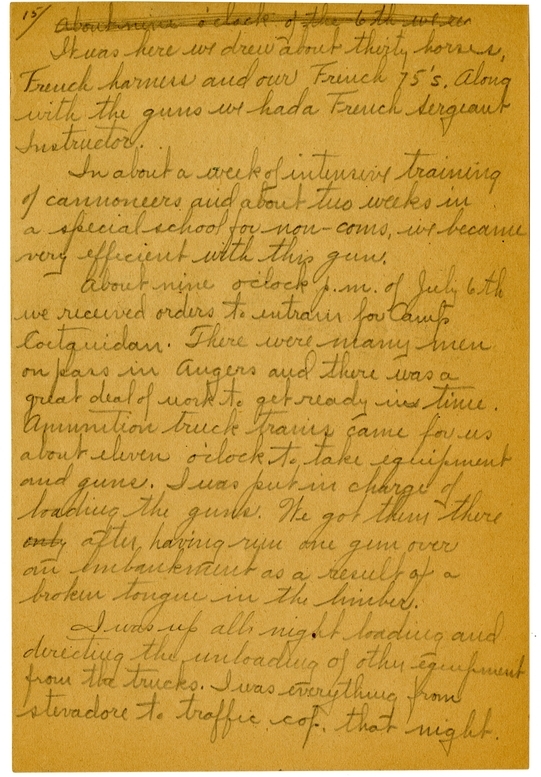 15/
About nine o'clock of the 6th we re
It was here we drew about thirty horses,
French harness and our French 75's. Along
with the guns we had a French Sergeant
Instructor.
In about a week of intensive training
of cannoneers and about two weeks in
a special school for non-coms, we became
very efficient with this gun.
About nine o'clock p.m. of July 6th
we received orders to entrain for Camp
Coetquidan. There were many men
on pass in Angers and there was a
great deal of work to get ready in time.
Ammunition truck trains came for us
about eleven o'clock to take equipment
and guns. I was put in charge of
loading the guns. We got them there
only after having run one gun over
an embankment as a result of a
broken tongue in the limber.
I was up all night loading and
directing the unloading of other equipment
from the trucks. I was everything from
stevadore to traffic cop that night.